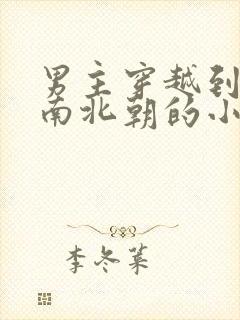 男主穿越到
南北朝的小
李冬菓